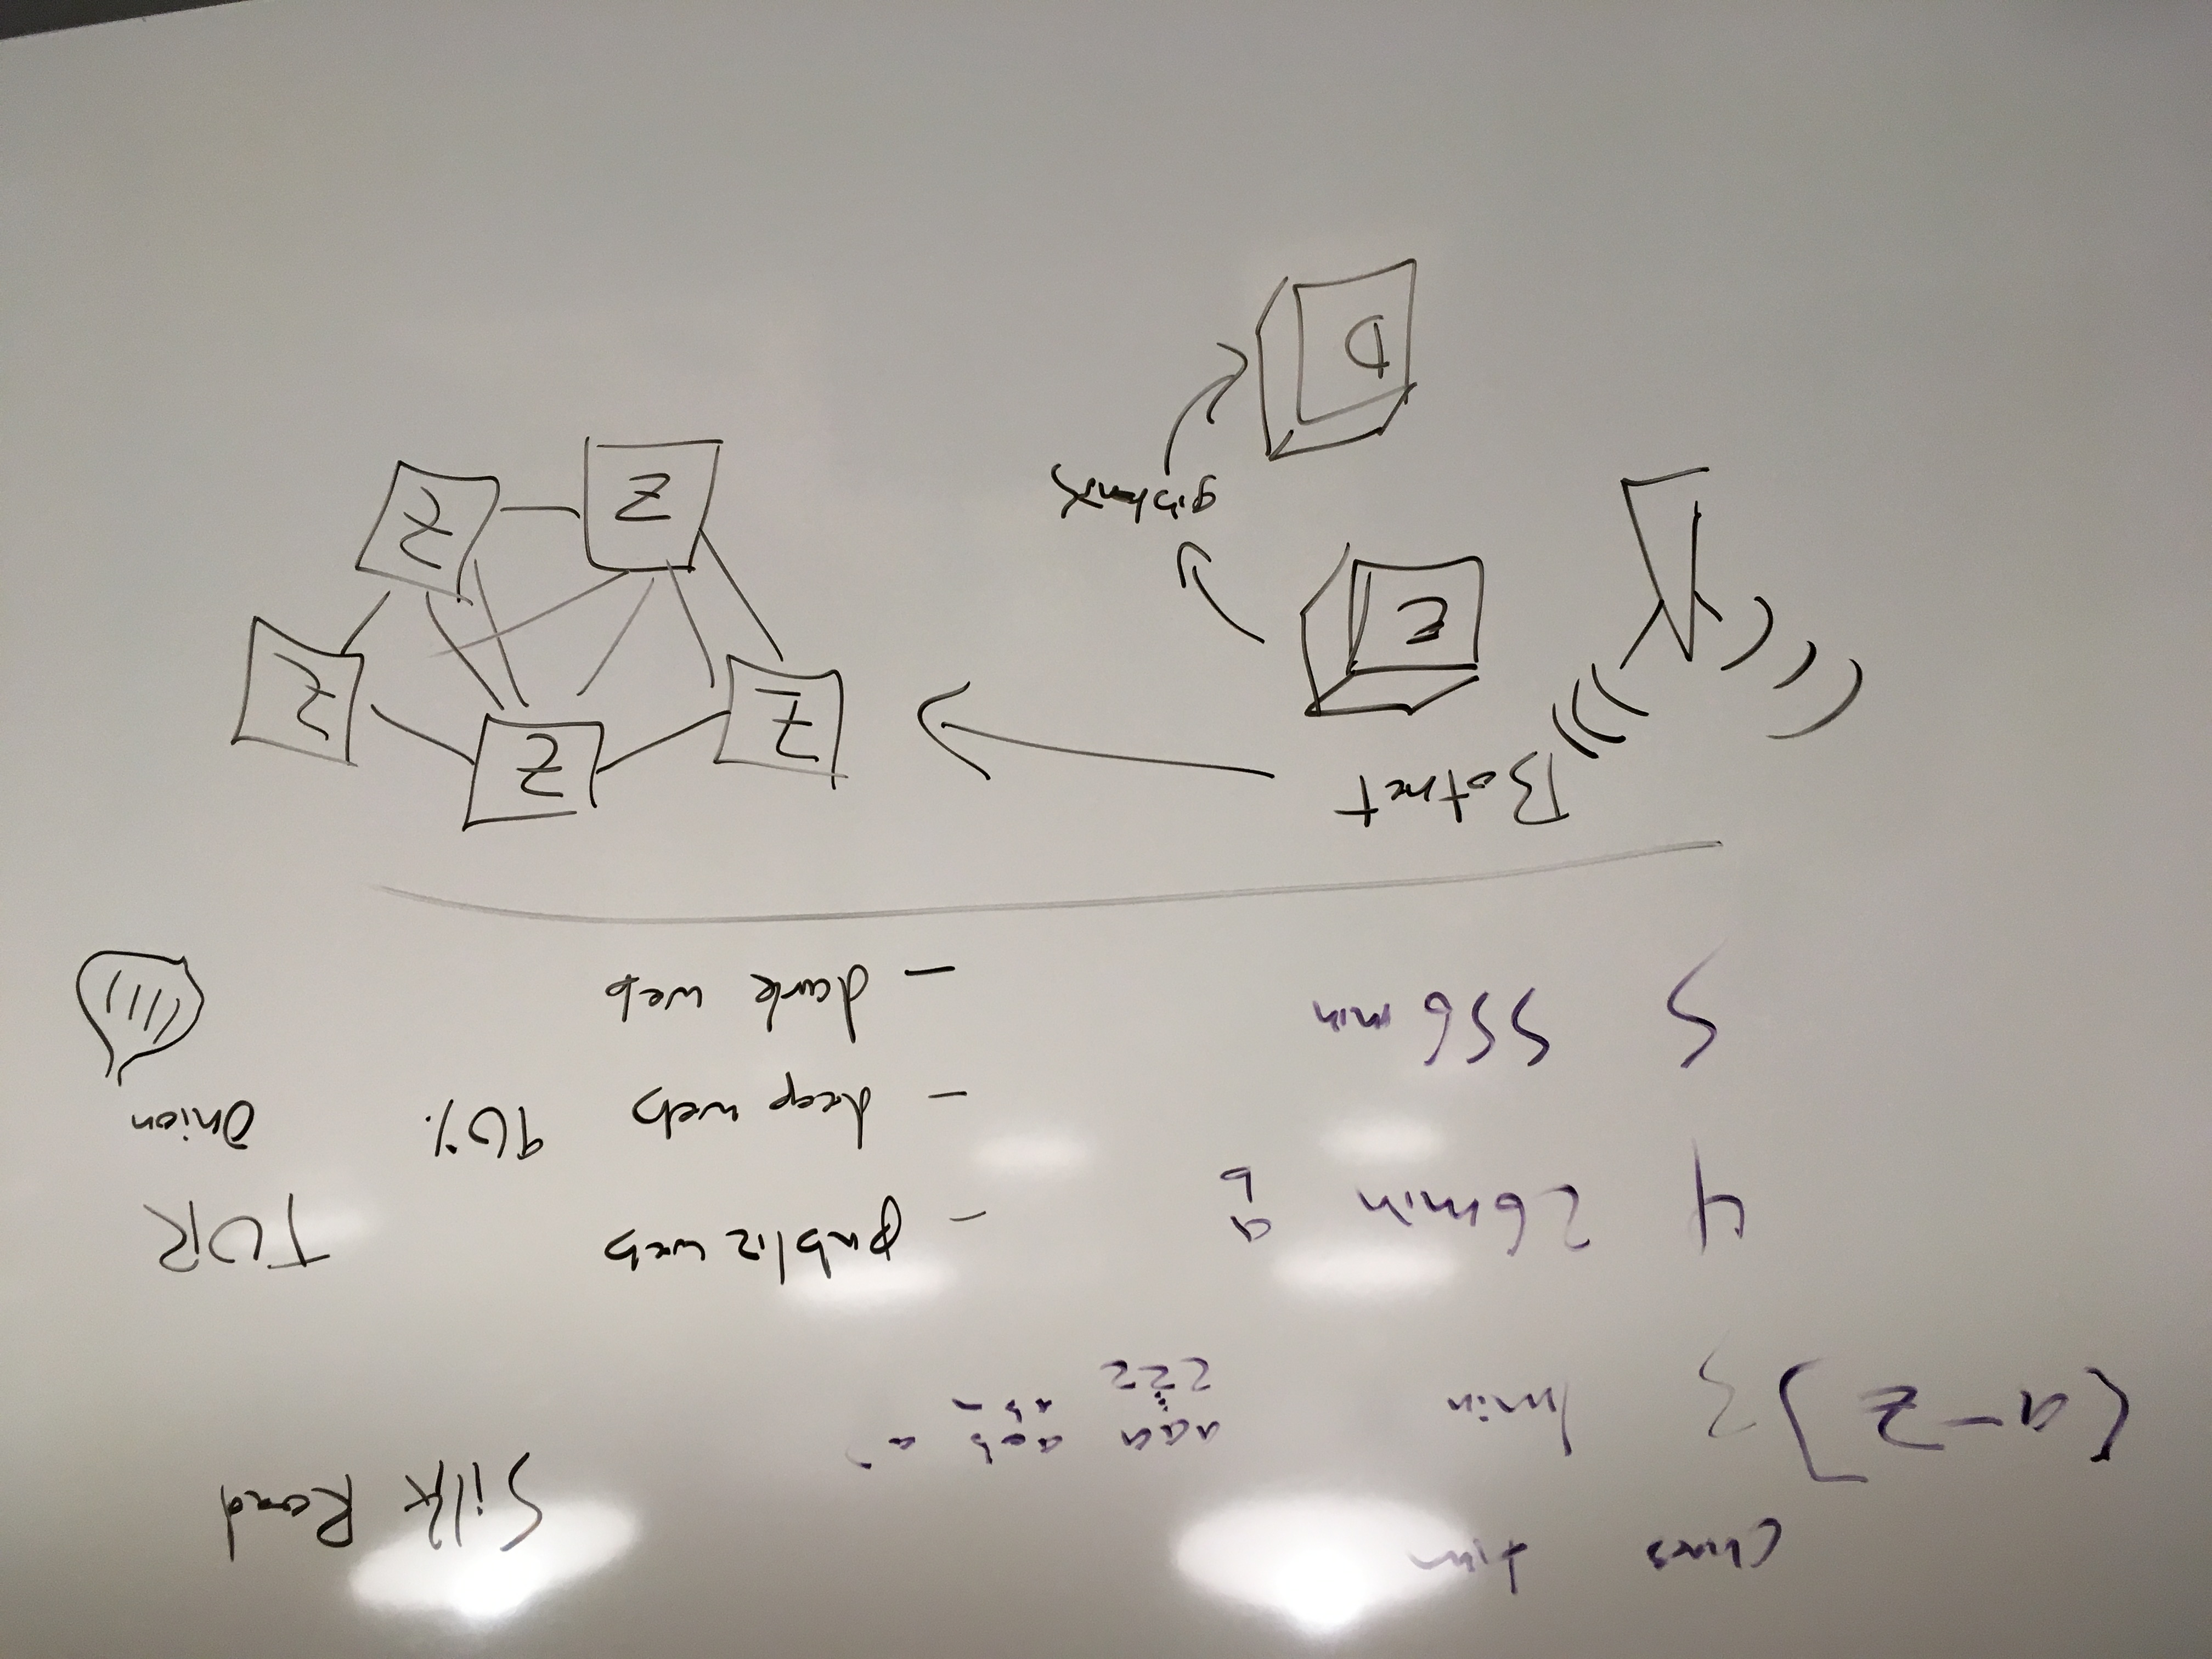 chars time
[a-z] 3 1min aaa aab a
zzz aba
4 26min a
b
5 556 min
Silk Road
- public web
- deep web 90%
- dark web
TOR
Onion
Botnet
E
gibberish
D
Z
Z
Z
Z
Z